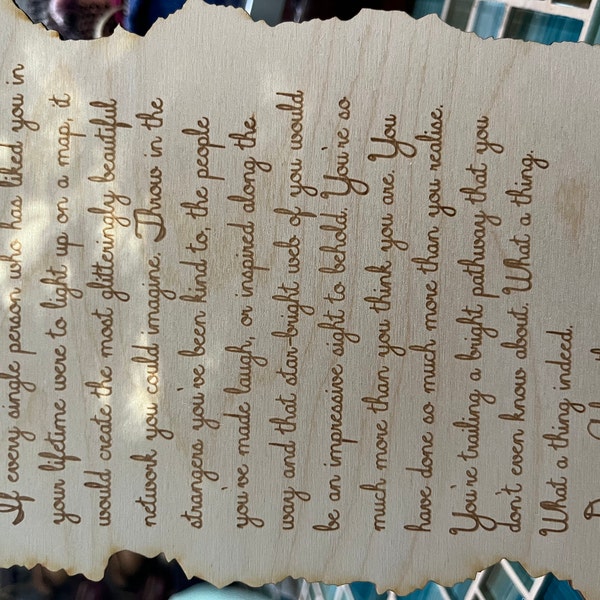 If every single person who has liked you in
your lifetime were to light up on a map, it
would create the most glitteringly beautiful
network you could imagine. Throw in the
strangers you've been kind to, the people
you've made laugh, or inspired along the
way and that star-bright web of you would
be an impressive sight to behold. You're so
much more than you think you are. You
have done so much more than you realise.
You're trailing a bright pathway that you
don't even know about. What a thing.
What a thing indeed.